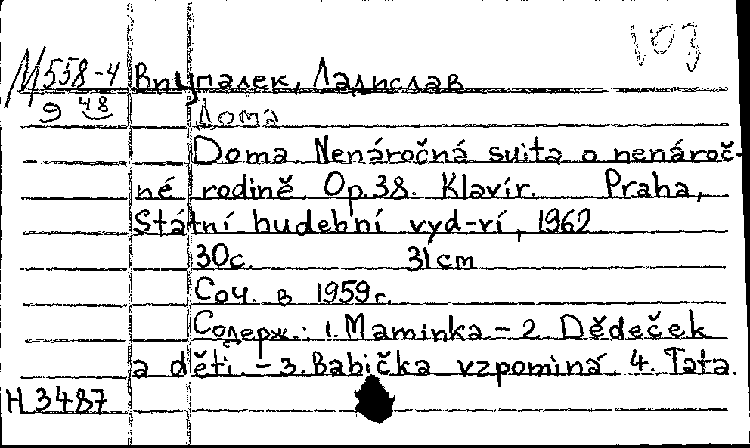 103
М 558-4 Вицпалек, Ладислав
9 48 Дома
Doma Nenáročná suita o nenároč-
né rodině. Op. 38. Klavír. Praha,
Státní hudební vyd-ví, 1962
30с. 31 cm
Соч. в 1959г.
Содерж.: 1. Maminka - 2. Dědeček
a děti - 3. Babička vzpominá 4. Tata.
Н 3487